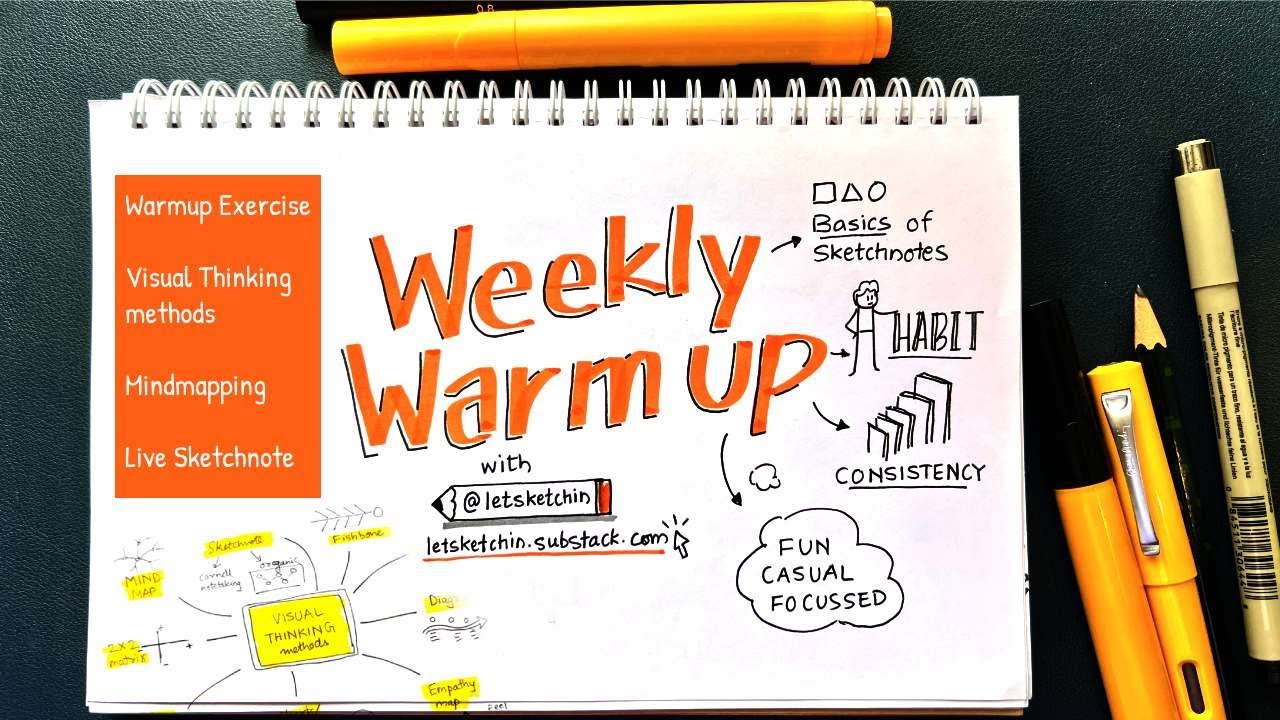 0.8
Warmup Exercise
Visual Thinking
methods
Mindmapping
Live Sketchnote
Weekly
Warm up
with
@letsketchin
letsketchin.substack.com
Basics of
Sketchnotes
HABIT
CONSISTENCY
FUN
CASUAL
FOCUSSED
Sketchnote
cornell
notetaking
organic
Fishbone
MIND
MAP
VISUAL
THINKING
methods
2x2
matrix
Empathy
map
Feel